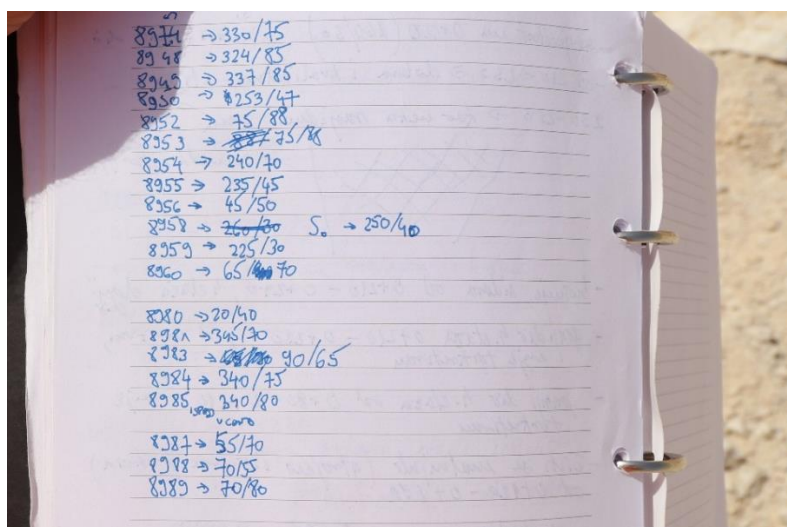 8974 → 330/75
8948 → 324/85
8949 → 337/85
8950 → 253/47
8952 → 75/88
8953 → 75/88
8954 → 240/70
8955 → 235/45
8956 → 45/50
8958 → 260/30 S₀ → 250/40
8959 → 225/30
8960 → 65/70
8980 → 20/40
8981 → 345/70
8983 → 90/65
8984 → 340/75
8985 → 340/80
8987 → 55/70
8988 → 70/55
8989 → 70/80